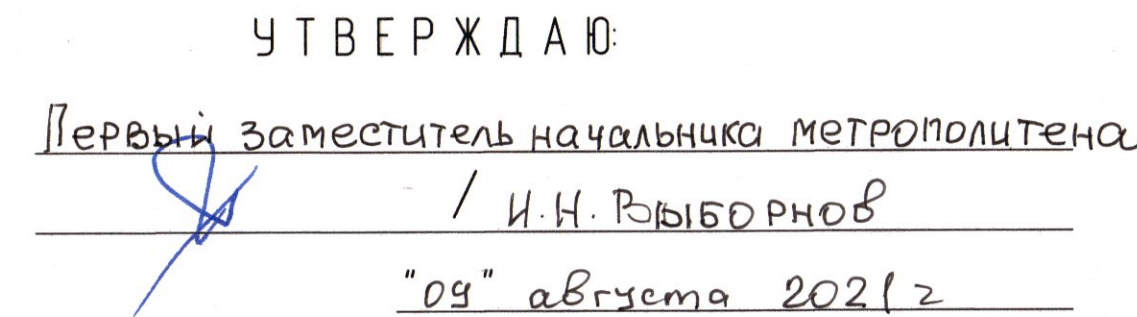 УТВЕРЖДАЮ:
Первый заместитель начальника метрополитена
/ И.Н. Выборнов
"09" августа 2021 г